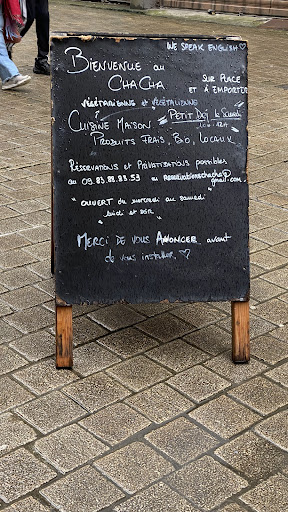 WE SPEAK ENGLISH ♡
BIENVENUE au
CHACHA
SUR PLACE
ET À EMPORTER
VÉGÉTARIENNE et VÉGÉTALIENNE
CUISINE MAISON
PETIT DEJ le Samedi
PRODUITS FRAIS, BIO, LOCAUX
RÉSERVATIONS et PRIVATISATIONS possibles
au 09.83.88.93.53 ou reservationschacha@
gmail.com
"OUVERT du mercredi au samedi
midi et soir"
MERCI DE VOUS ANNONCER avant
de vous installer. ♡